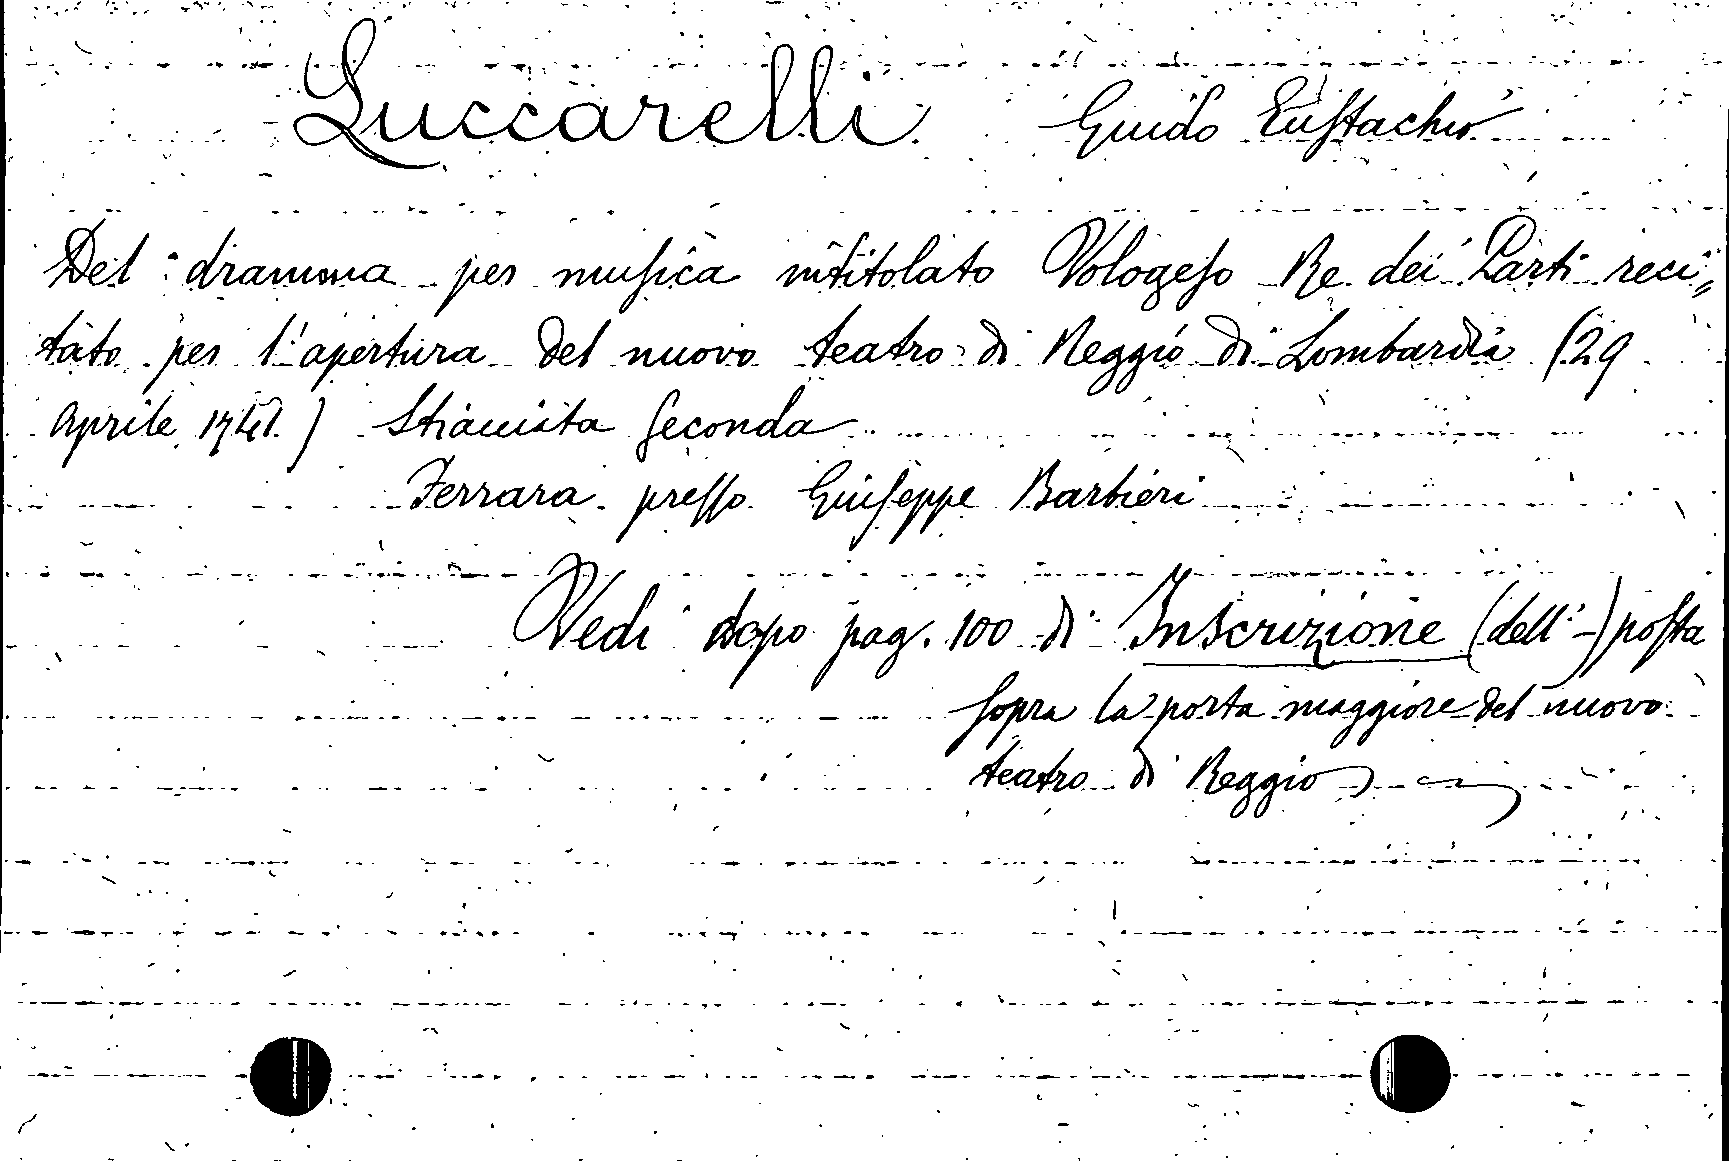 Luccarelli Guido Eustachio
Del dramma per musica intitolato Vologeso Re dei Parti reci„
tato per l'apertura del nuovo teatro di Reggio di Lombardia (29
Aprile 1741.) Seconda
Ferrara presso Giuseppe Barbieri
Vedi dopo pag. 100 di Inscrizione (dell'-) posta
sopra la porta maggiore del nuovo
teatro di Reggio